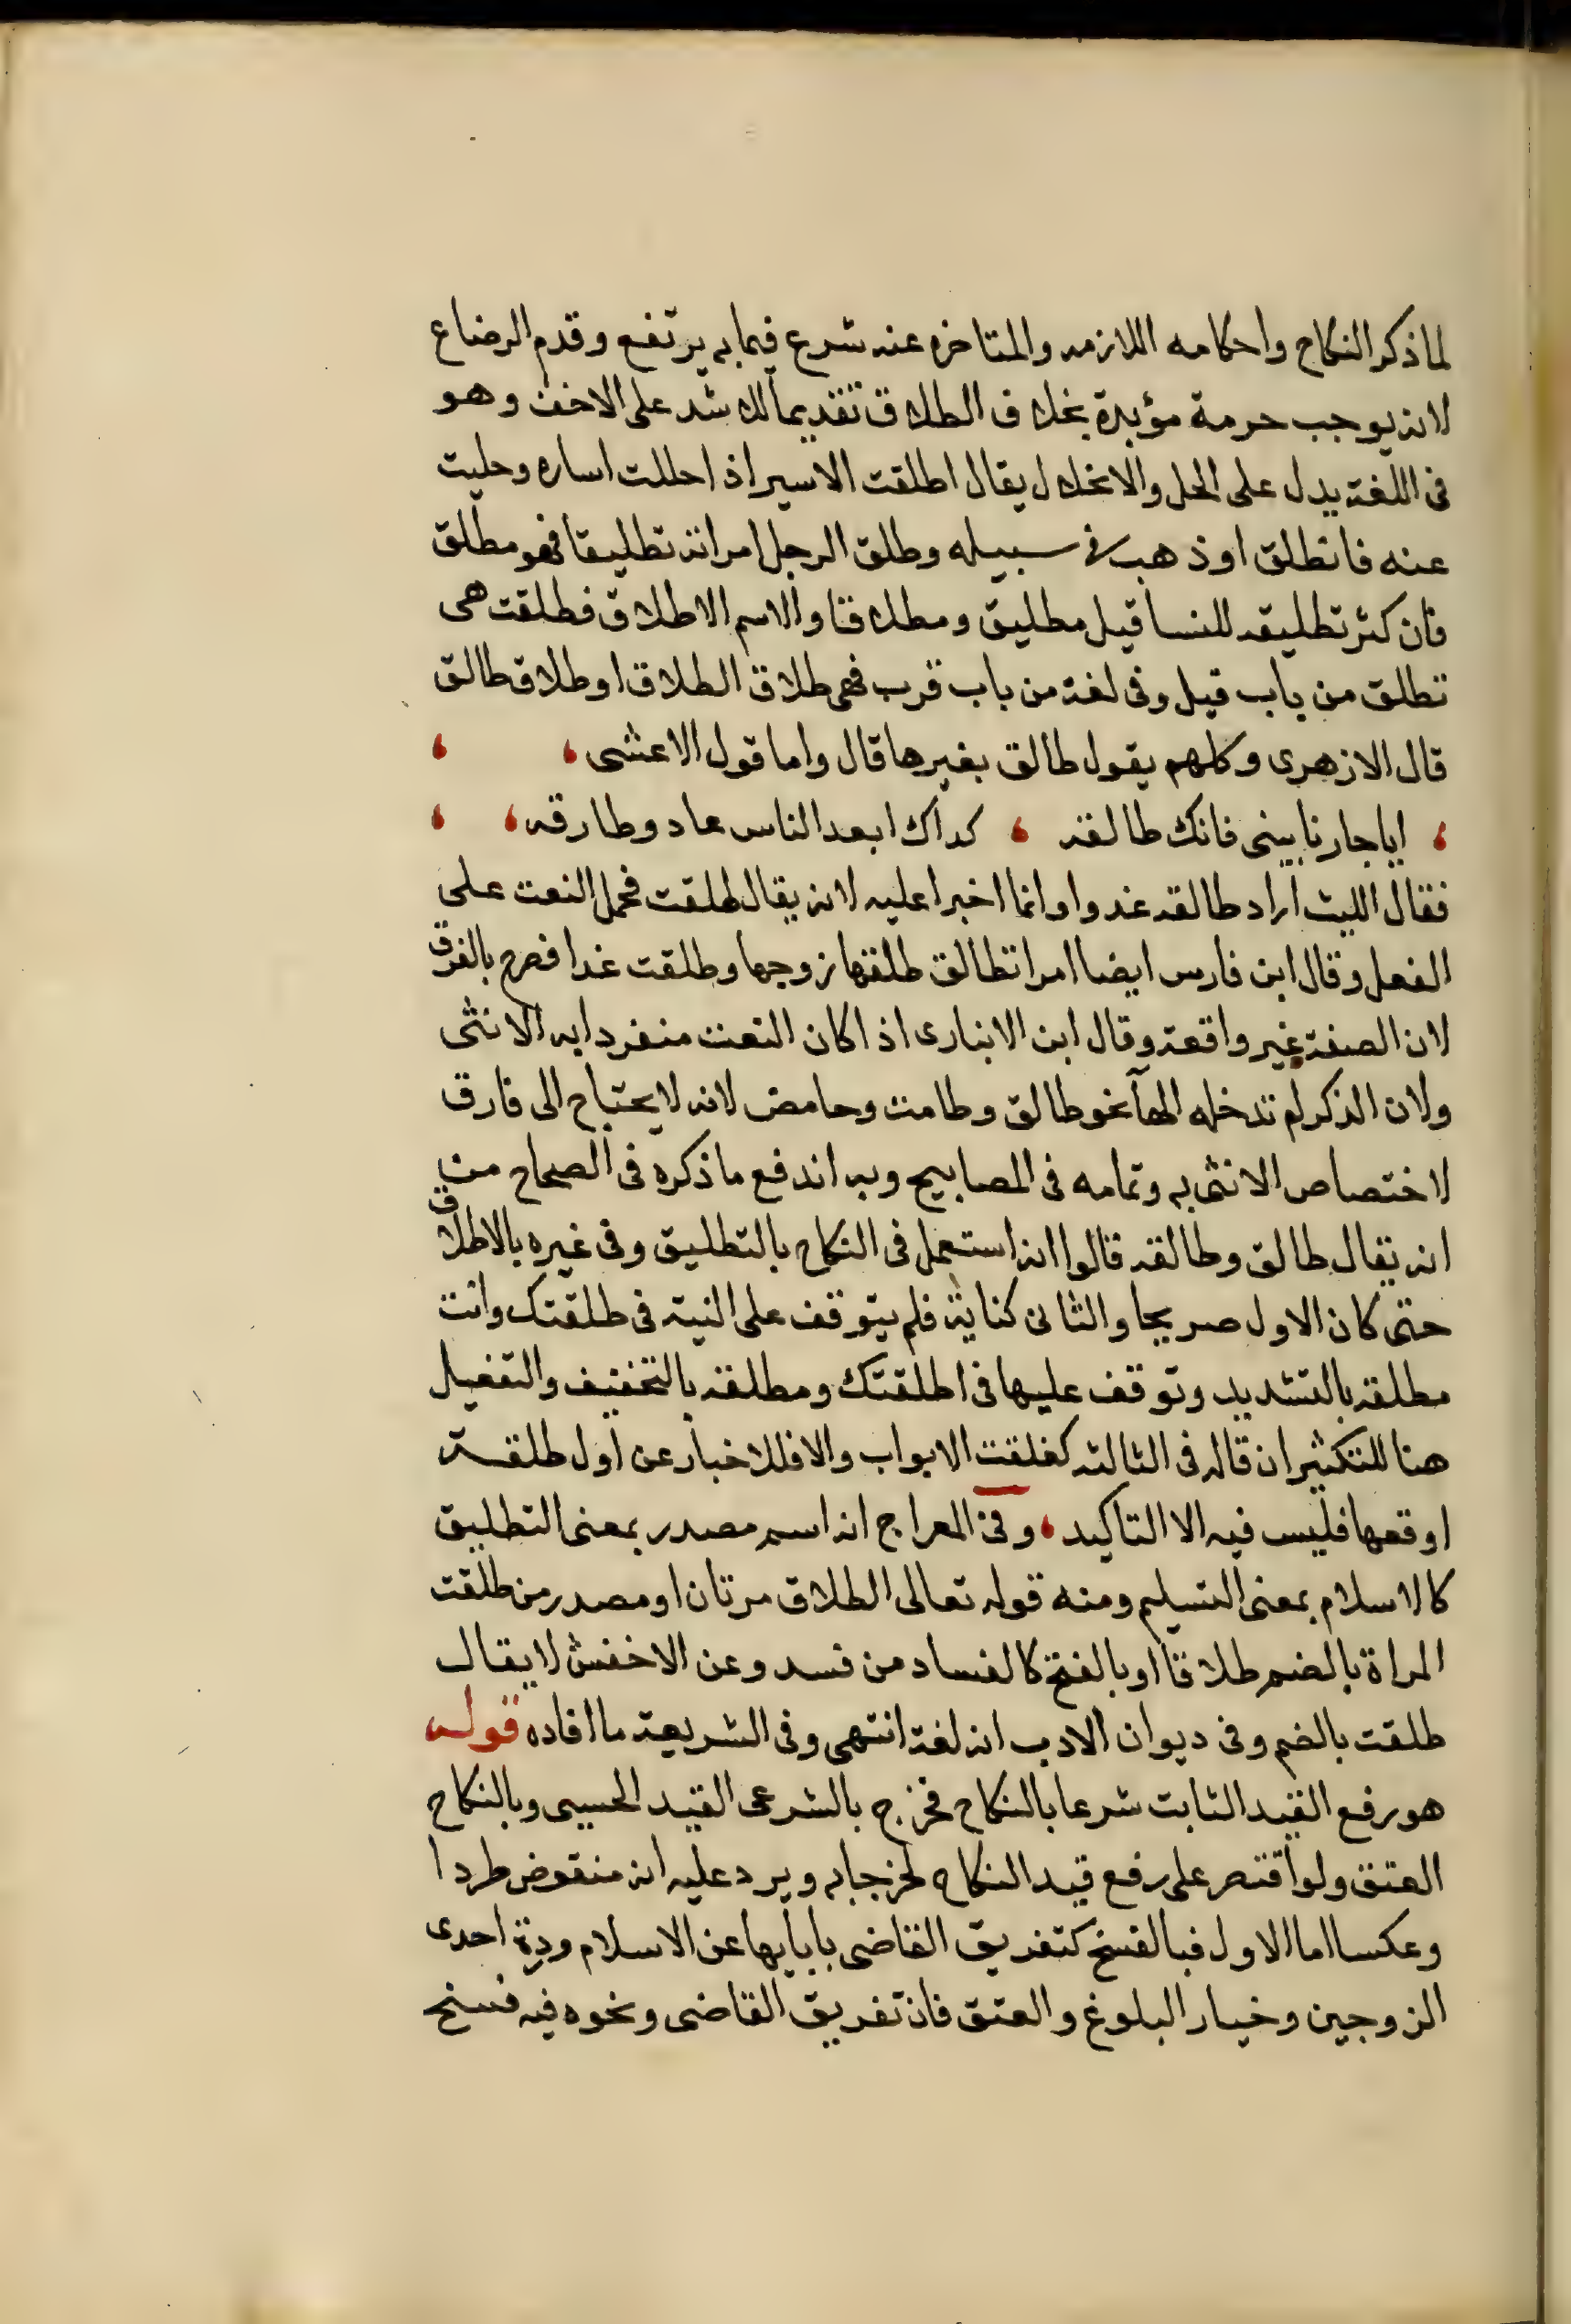 لما ذكر النكاح واحكامه اللازمه والمتاخره عنه شرع فيما به يرتفع وقدم الرضاع
لانه يوجب حرمة مؤبدة بخلاف الطلاق تقديما للاشد على الاخف وهو
فى اللغة يدل على الحل والانحلال يقال اطلقت الاسير اذا حللت اساره وخليت
عنه فانطلق اوذهب فى سبيله وطلق الرجل امراته تطليقا فهو مطلق
فان كثر تطليقه للنسا قيل مطليق ومطلاقا والاسم الاطلاق فطلقت هى
تطلق من باب قيل وفى لغة من باب قرب فهى طلاق الطلاق او طلاق طالق
قال الازهرى وكلهم يقول طالق بغيرها قال واما قول الاعشى ،  ،
، ايا جارتا بينى فانك طالقه ، كداك ابعد الناس عاد وطارقه ،  ،
فقال الليث اراد طالقه غدوا وانما اخبرا عليه لانه يقال طلقت فحمل النعت على
الفعل وقال ابن فارس ايضا امراة طالق طلقها زوجها وطلقت غدا فصرح بالفرق
لان الصفة غير واقعة وقال ابن الانبارى اذا كان النعت منفردا به الانثى
ولان الذكر لم تدخله الهآ نحو طالق وطامث وحامض لانه لا يحتاج الى فارق
لاختصاص الانثى به وتمامه فى المصابيح وبه اندفع ما ذكره فى الصحاح من
انه يقال طالق وطالقه قالوا انه استعمل فى النكاح بالتطليق وفى غيره بالاطلاق
حتى كان الاول صريحا والثانى كناية فلم يتوقف على النية فى طلقتك وانت
مطلقه بالتشديد وتوقف عليها فى اطلقتك ومطلقه بالتخفيف والتفعيل
هنا للتكثير ان قاله فى الثالثه كغلقت الابواب والا فللاخبار عن اول طلقة
اوقعها فليس فيه الا التاكيد ، وفى المعراج انه اسم مصدر بمعنى التطليق
كالاسلام بمعنى التسليم ومنه قوله تعالى الطلاق مرتان او مصدر من طلقت
المراة بالضم طلاقا او بالفتح كالفساد من فسد وعن الاخفش لا يقال
طلقت بالضم وفى ديوان الادب انه لغة انتهى وفى الشريعة ما افاده قوله
هو رفع القيد الثابت شرعا بالنكاح فخرج بالشرعى القيد الحسى وبالنكاح
العتق ولو اقتصر على رفع قيد النكاح لخرجا به ويرد عليه انه منقوض طردا
وعكسا اما الاول فبالفسخ كتفريق القاضى بابايها عن الاسلام وردة احدى
الزوجين وخيار البلوغ والعتق فان تفريق القاضى ونحوه فيه فسخ